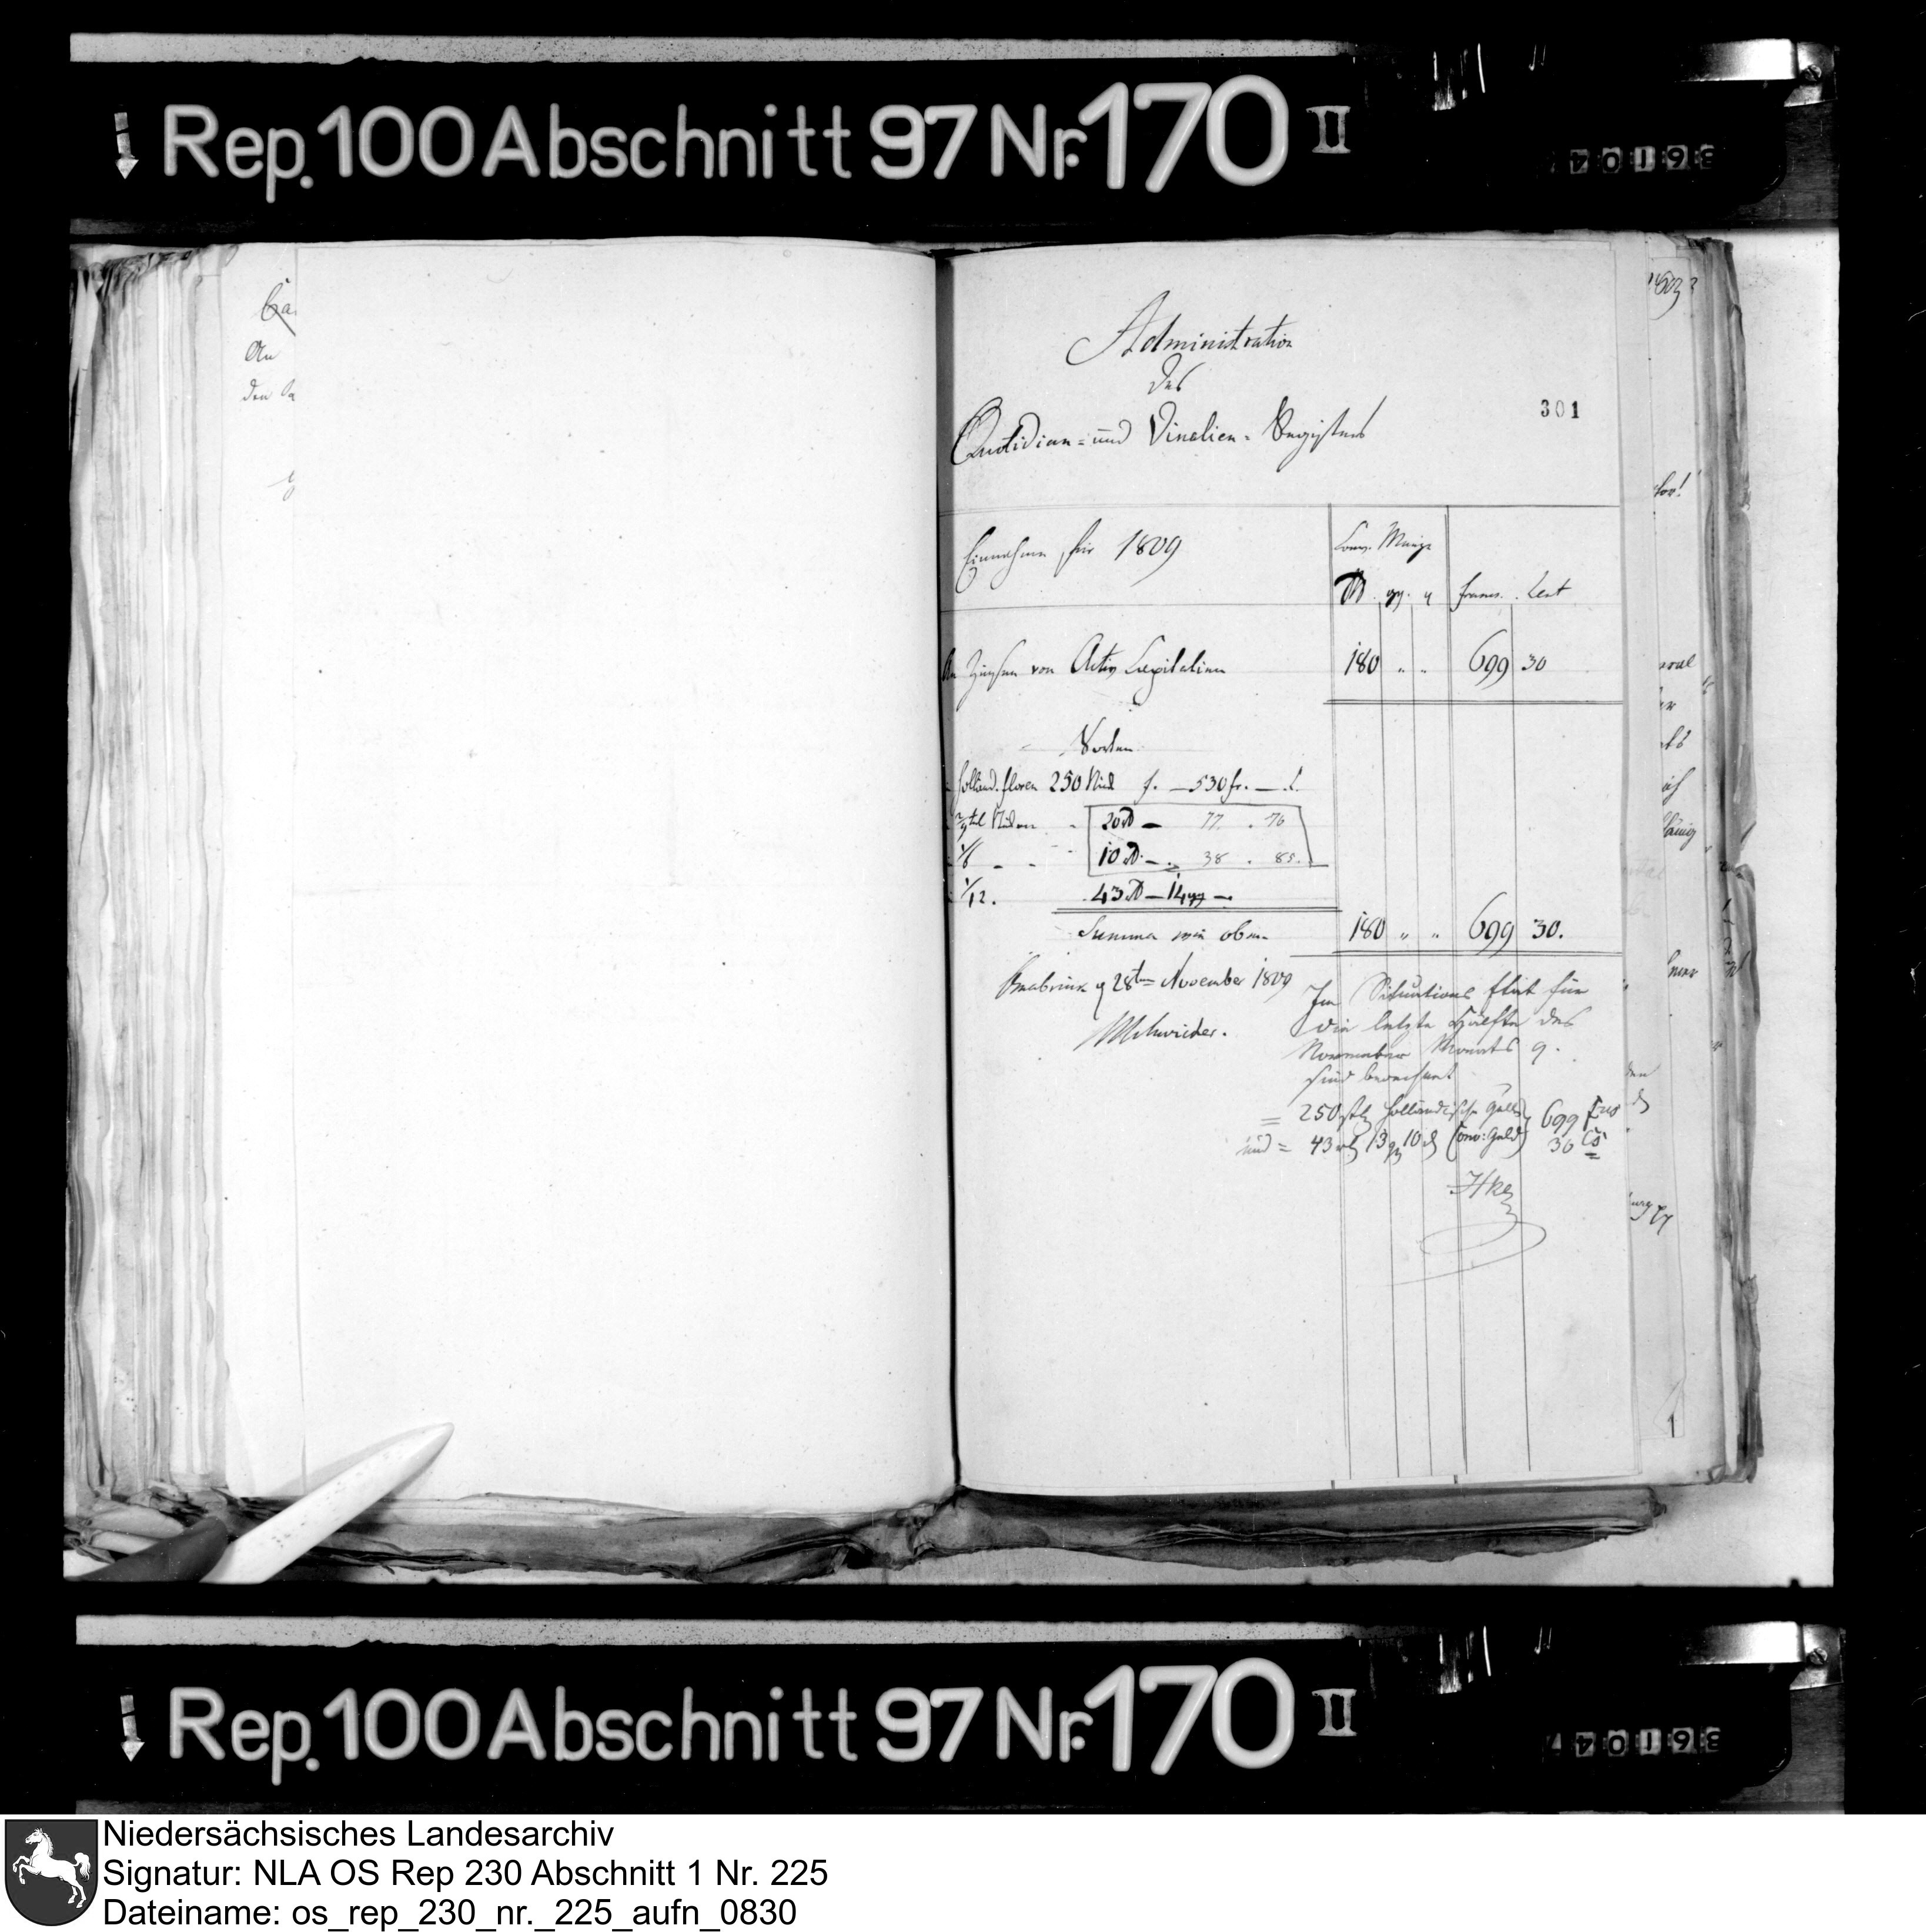 Rep. 100 Abschnitt 97 Nr. 170 II
36104
Ca
An
den
Administration
des
Quotidian- und Vinalien-Registers
301
Einnahme für 1809
Conv. Münze
francs. Cent
An Zinsen von Activ Capitalien 180 " " 699 30
Sorten
holländ. floren 250 Stück f. — 530 fr. — C.
20 — 77. 76
1/6 10 — 38. 85.
1/12. 43 — 14 gg —
Summa wie oben 180 " " 699 30.
Osnabrück d 28ten November 1809
Im Situations Etat für
die letzte Hälfte des
November Monats 9.
sind berechnet
= 250 holländische Guld
und = 43 13 10 (Conv: Geld) 699
30 Cs
Rep. 100 Abschnitt 97 Nr. 170 II
36104
Niedersächsisches Landesarchiv
Signatur: NLA OS Rep 230 Abschnitt 1 Nr. 225
Dateiname: os_rep_230_nr._225_aufn_0830